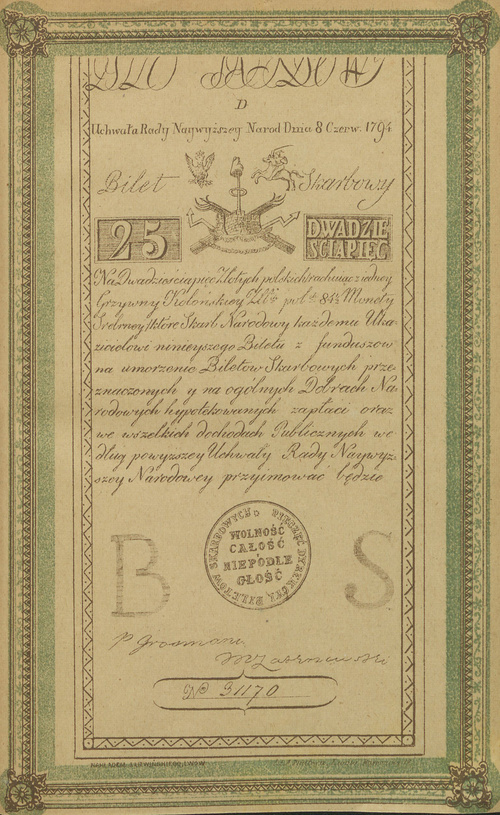 D
Uchwała Rady Naywyższey Narod Dnia 8 Czerw. 1794
Bilet Skarbowy
25
DWADZIE
ŚCIAPIĘĆ
Na Dwadzieściapięć Złotych polskich rachuiąc z iedney
Grzywny Kolońskiey Zł pol 84½ Monety
Srebrney, które Skarb Narodowy każdemu Uka
zicielowi ninieyszego Biletu z funduszow
na umorzenie Biletow Skarbowych prze
znaczonych y na ogólnych Dobrach Na
rodowych hypotekowanych zapłaci oraz
we wszelkich dochodach Publicznych we
dług powyższey Uchwały Rady Naywyż
szey Narodowey przyimować będzie
PIECZĘĆ DYREKCYI BILETÓW SKARBOWYCH
WOLNOŚĆ
CAŁOŚĆ
I
NIEPODLE
GŁOŚĆ
B S
No 31170